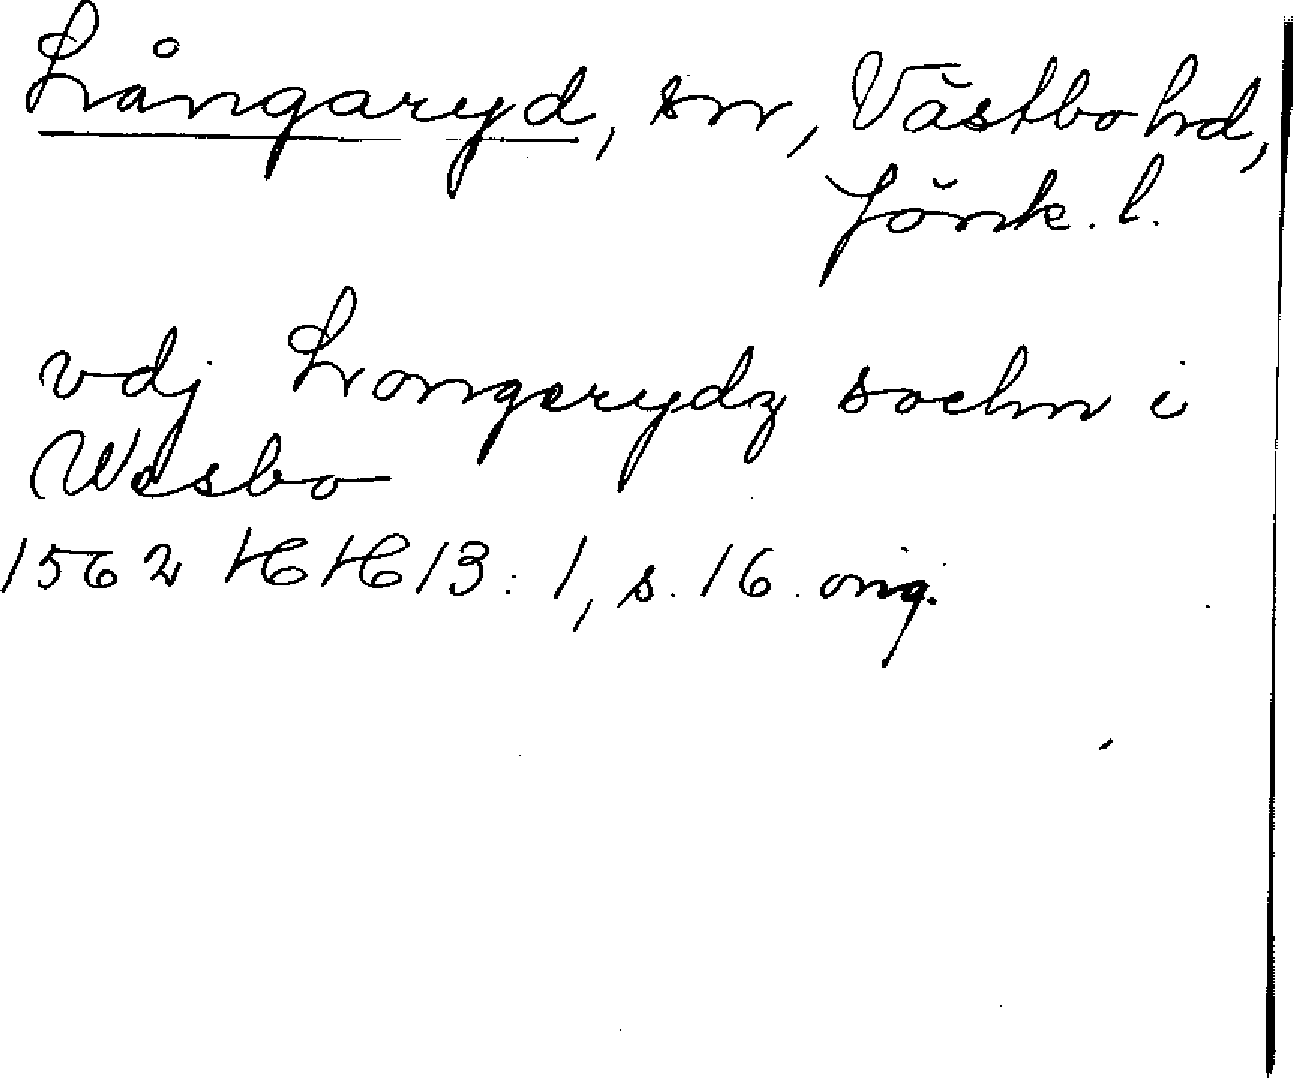 Långaryd, sn, Västbo hd,
Jönk. l.
vdj Longerydz sochn i
Wesbo
1562 HH 13:1, s. 16 orig.